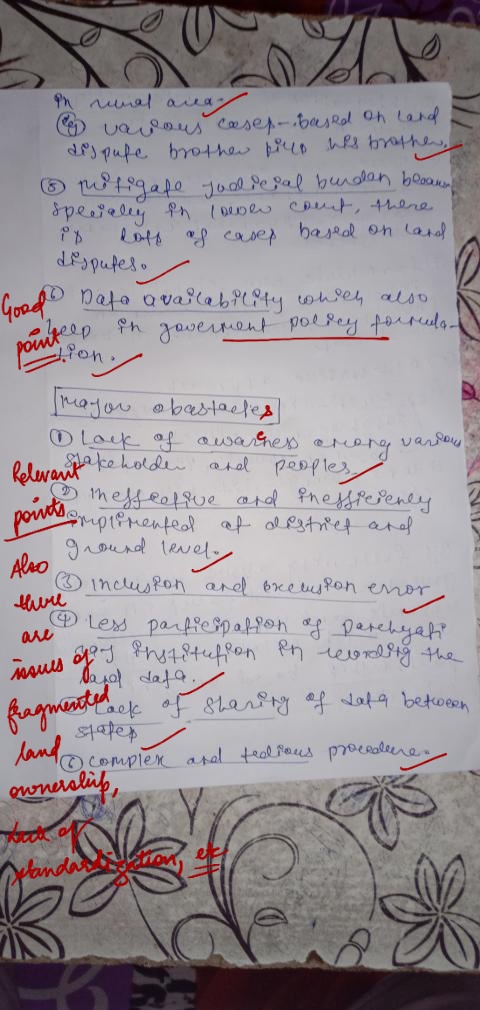 in rural area.
(eg) various cases-based on land
dispute brother kills his brother.
⑤ mitigate judicial burden because
specialy in lower court, there
is lots of cases based on land
disputes.
Good
point.
⑥ Data availability which also
help in goverment policy formula-
tion.
major obastacles
① Lack of awareness among various
stakeholder and peoples.
Relevant
points.
② Ineffective and inefficiency
implimented at district and
ground level.
③ inclusion and exclusion error
④ Less participation of panchyati
raj institution in recording the
land data.
⑤ Lack of sharing of data between
states
⑥ complex and tedious procedure.
Also
there
are
issues of
fragmented
land
ownership,
lack of
standardization, etc